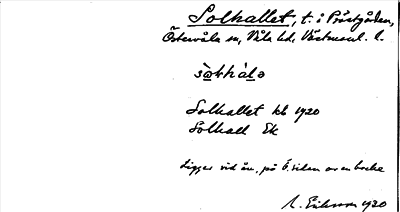 Solhallet, t. i Prästgården,
Östervåla sn, Våla hd, Västmanl. l.
Solhallet kb 1920
Solhall Ek
Ligger vid ån, på Ö. sidan av en backe
1920